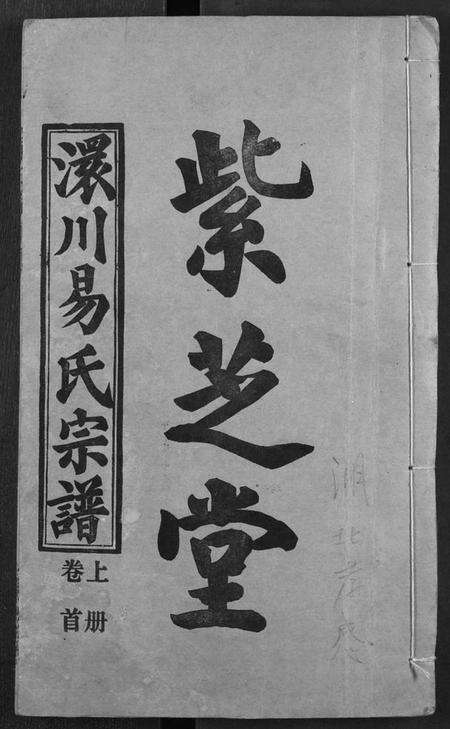 湖北孝感
紫芝堂
澴川易氏宗譜
卷首
上册